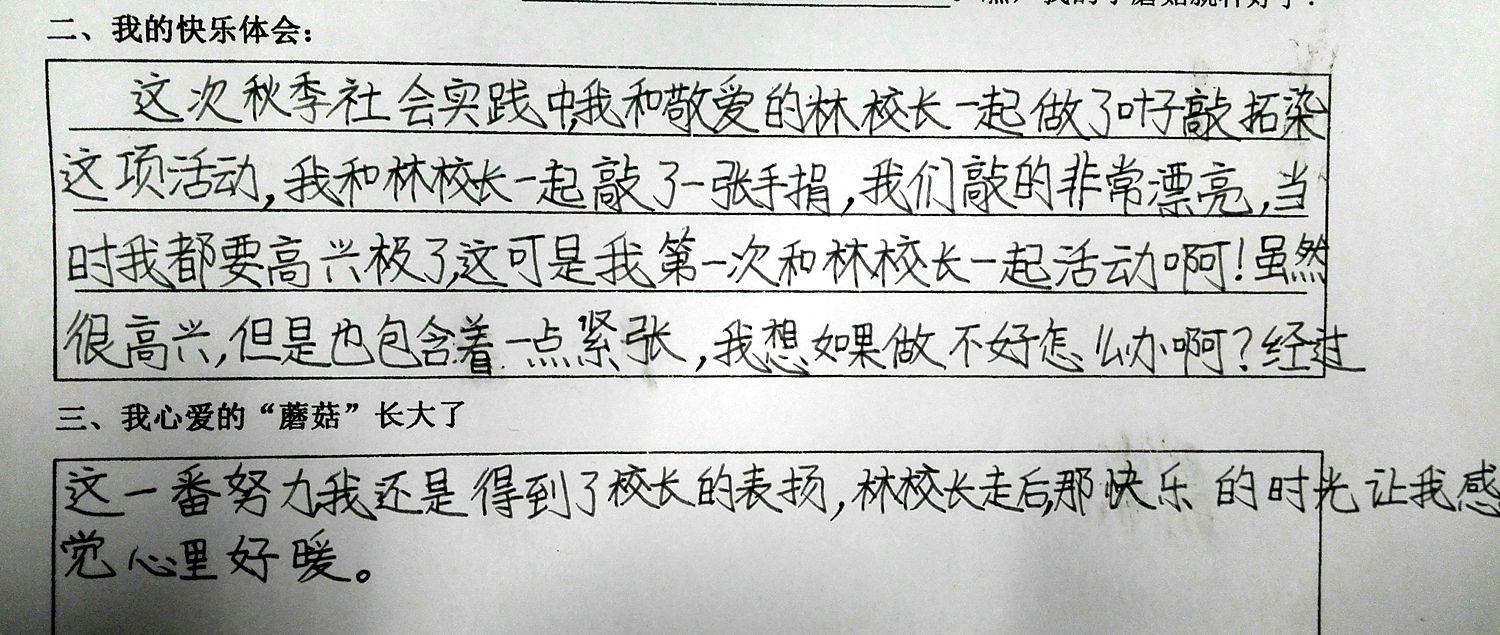 二、我的快乐体会：
这次秋季社会实践中,我和敬爱的林校长一起做了叶子敲拓染
这项活动,我和林校长一起敲了一张手捐,我们敲的非常漂亮,当
时我都要高兴极了,这可是我第一次和林校长一起活动啊!虽然
很高兴,但是也包含着一点紧张,我想如果做不好怎么办啊?经过
三、我心爱的“蘑菇”长大了
这一番努力,我还是得到了校长的表扬,林校长走后,那快乐的时光让我感
觉心里好暖。